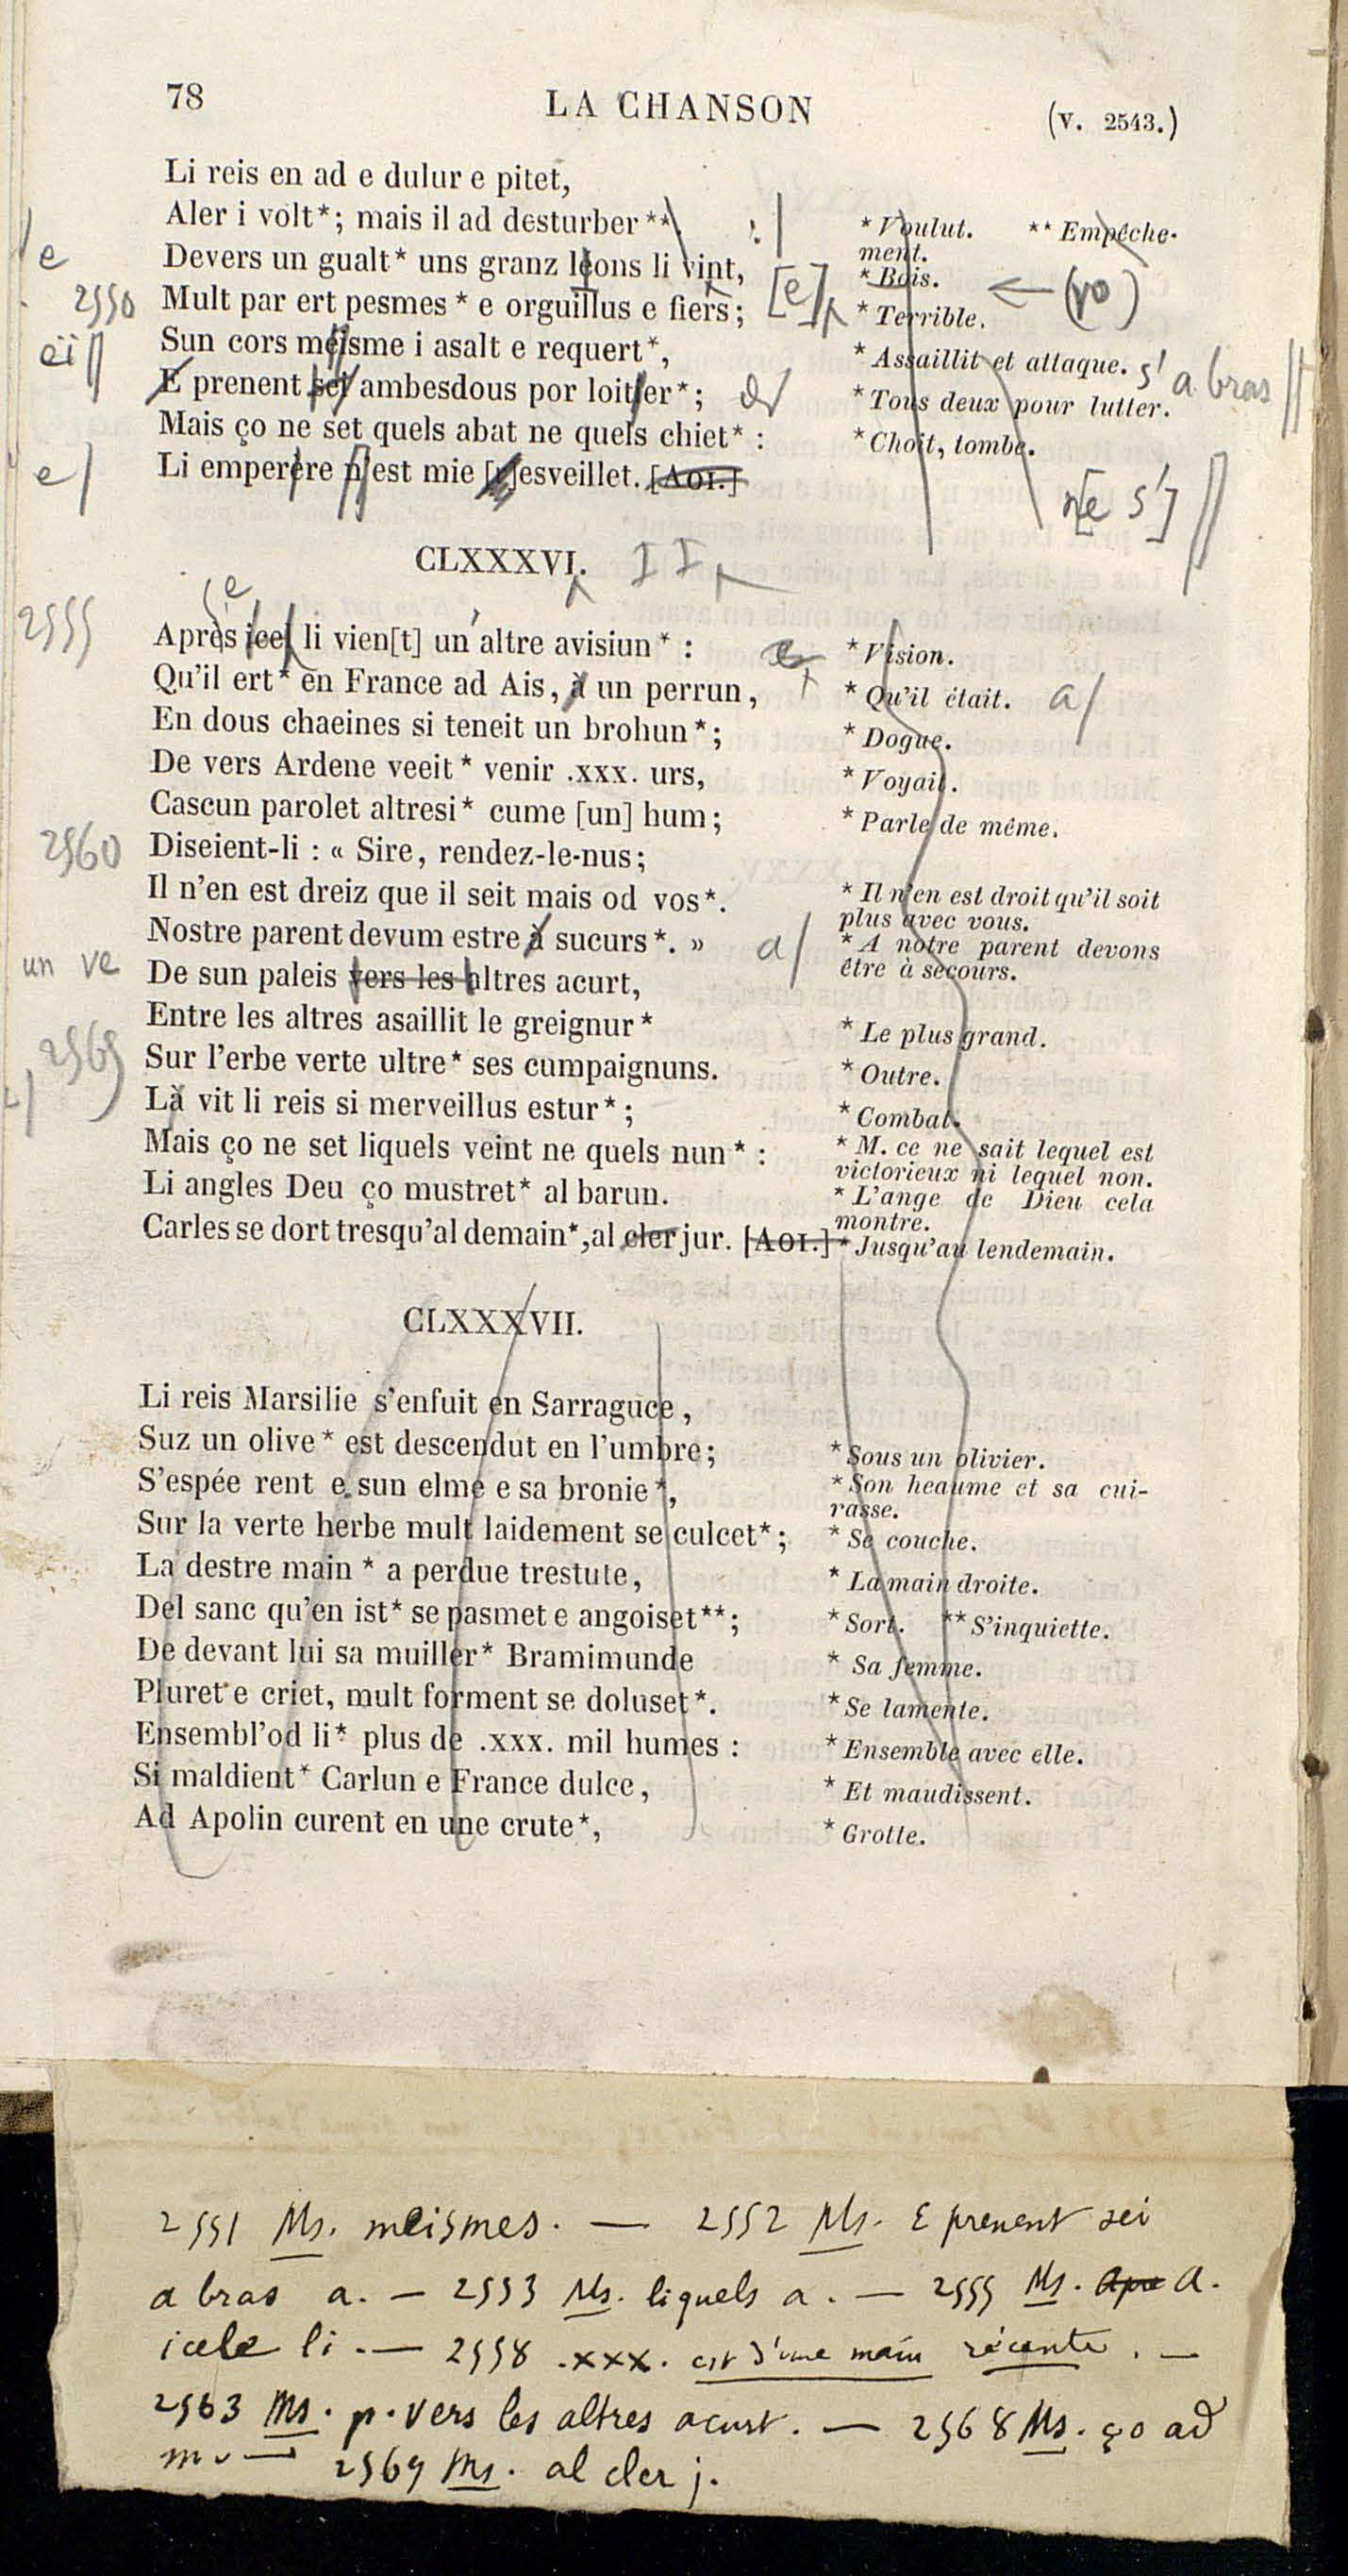 78 LA CHANSON (V. 2543.)
Li reis en ad e dulur e pitet,
Aler i volt*; mais il ad desturber**. :| * Voulut. ** Empêche-
ment.
e Devers un gualt* uns granz leons li vint, * Bois. ← (ro)
2550 Mult par ert pesmes* e orguillus e fiers; [e] * Terrible.
eï Sun cors meisme i asalt e requert*, * Assaillit et attaque. s' a bras
E prenent sei ambesdous por loitier*; * Tous deux pour lutter.
Mais ço ne set quels abat ne quels chiet* : * Choit, tombe.
e Li emperere n'est mie [s]esveillet. [AOI.] n[e s']
CLXXXVI. II
e
2555 Après icel li vien[t] un altre avisiun* : * Vision.
Qu'il ert* en France ad Ais, à un perrun, * Qu'il était. a
En dous chaeines si teneit un brohun*; * Dogue.
De vers Ardene veeit* venir .XXX. urs, * Voyait.
Cascun parolet altresi* cume [un] hum; * Parle de même.
2560 Diseient-li : « Sire, rendez-le-nus;
Il n'en est dreiz que il seit mais od vos*. * Il n'en est droit qu'il soit
plus avec vous.
Nostre parent devum estre à sucurs*. » a * A notre parent devons
être à secours.
un ve De sun paleis vers les altres acurt,
Entre les altres asaillit le greignur* * Le plus grand.
2565 Sur l'erbe verte ultre* ses cumpaignuns. * Outre.
Là vit li reis si merveillus estur*; * Combat.
Mais ço ne set liquels veint ne quels nun* : * M. ce ne sait lequel est
victorieux ni lequel non.
Li angles Deu ço mustret* al barun. * L'ange de Dieu cela
montre.
Carles se dort tresqu'al demain*, al cler jur. [AOI.] * Jusqu'au lendemain.
CLXXXVII.
Li reis Marsilie s'enfuit en Sarraguce,
Suz un olive* est descendut en l'umbre; * Sous un olivier.
S'espée rent e sun elme e sa bronie*, * Son heaume et sa cui-
rasse.
Sur la verte herbe mult laidement se culcet*; * Se couche.
La destre main * a perdue trestute, * La main droite.
Del sanc qu'en ist* se pasmet e angoiset**; * Sort. ** S'inquiette.
De devant lui sa muiller* Bramimunde * Sa femme.
Pluret e criet, mult forment se doluset*. * Se lamente.
Ensembl'od li* plus de .XXX. mil humes : * Ensemble avec elle.
Si maldient* Carlun e France dulce, * Et maudissent.
Ad Apolin curent en une crute*, * Grotte.
2551 Ms. meismes. — 2552 Ms. E prenent sei
a bras a. — 2553 Ms. liquels a. — 2555 Ms. A.
icele li. — 2558 .xxx. est d'une main récente. —
2563 Ms. p. vers les altres acurt. — 2568 Ms. ço ad
m. — 2569 Ms. al cler j.